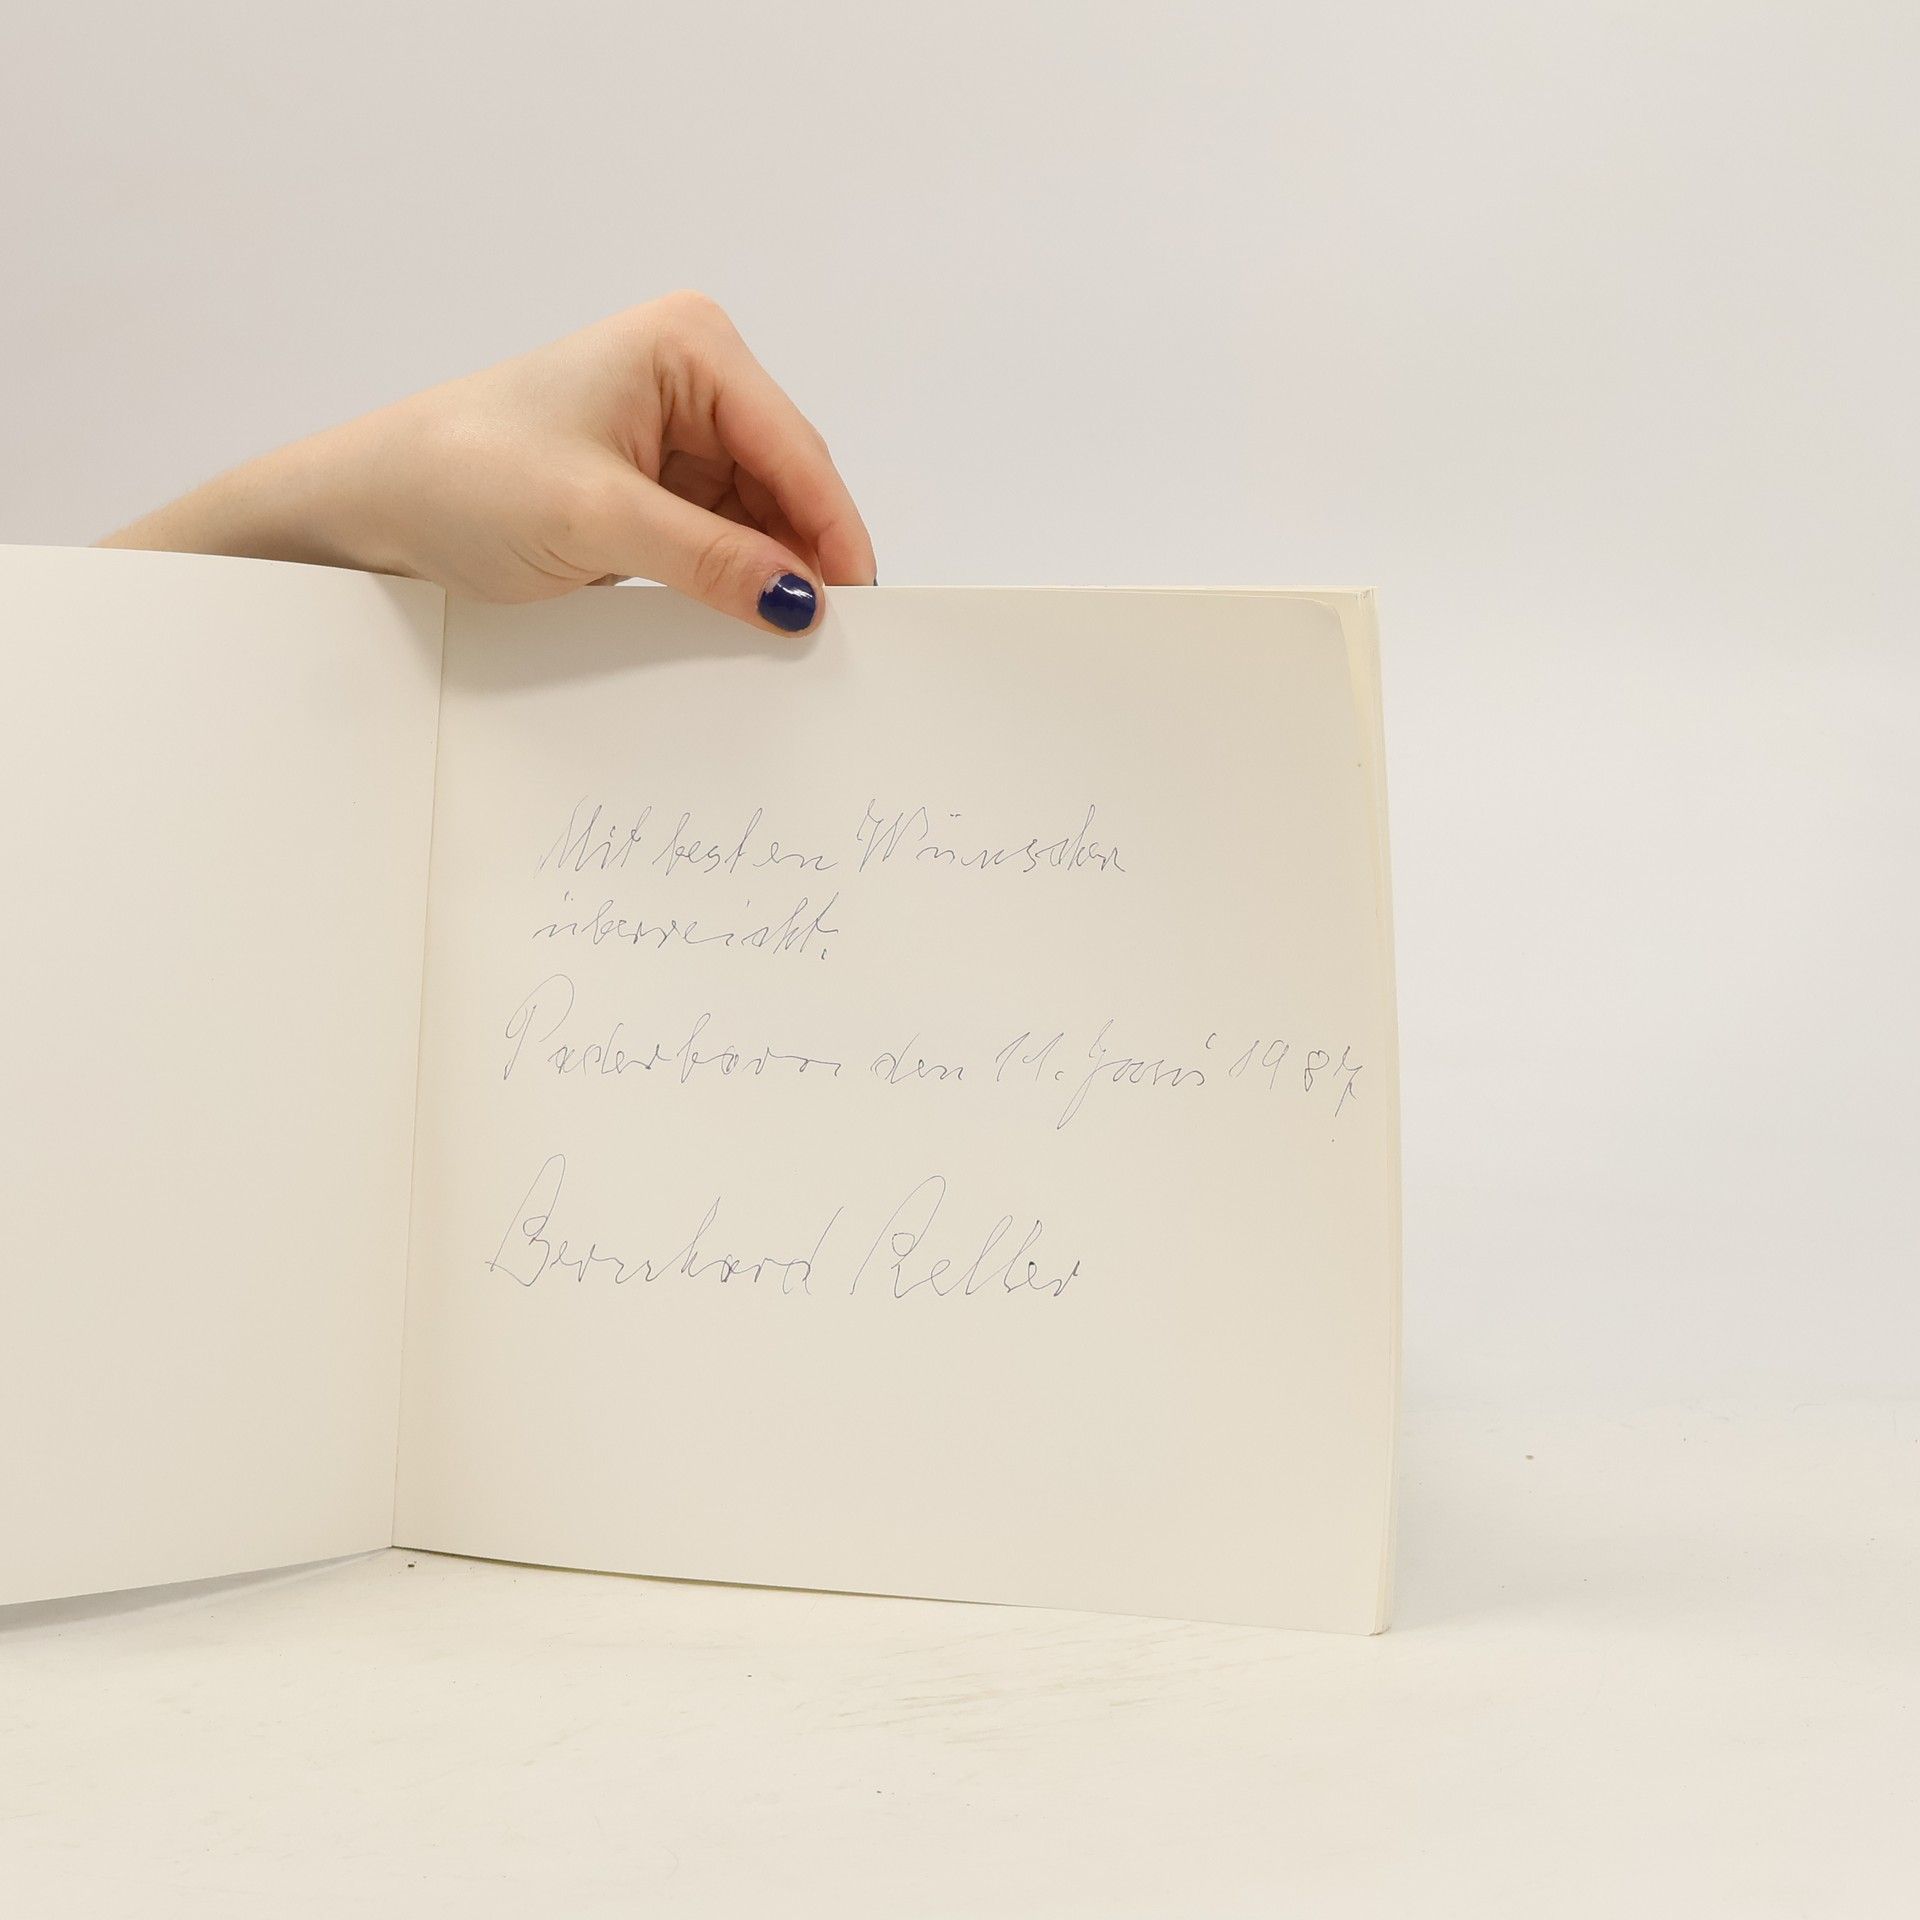 Mit besten Wünschen
überreicht.
Paderborn den 11. Juni 1987
Bernhard